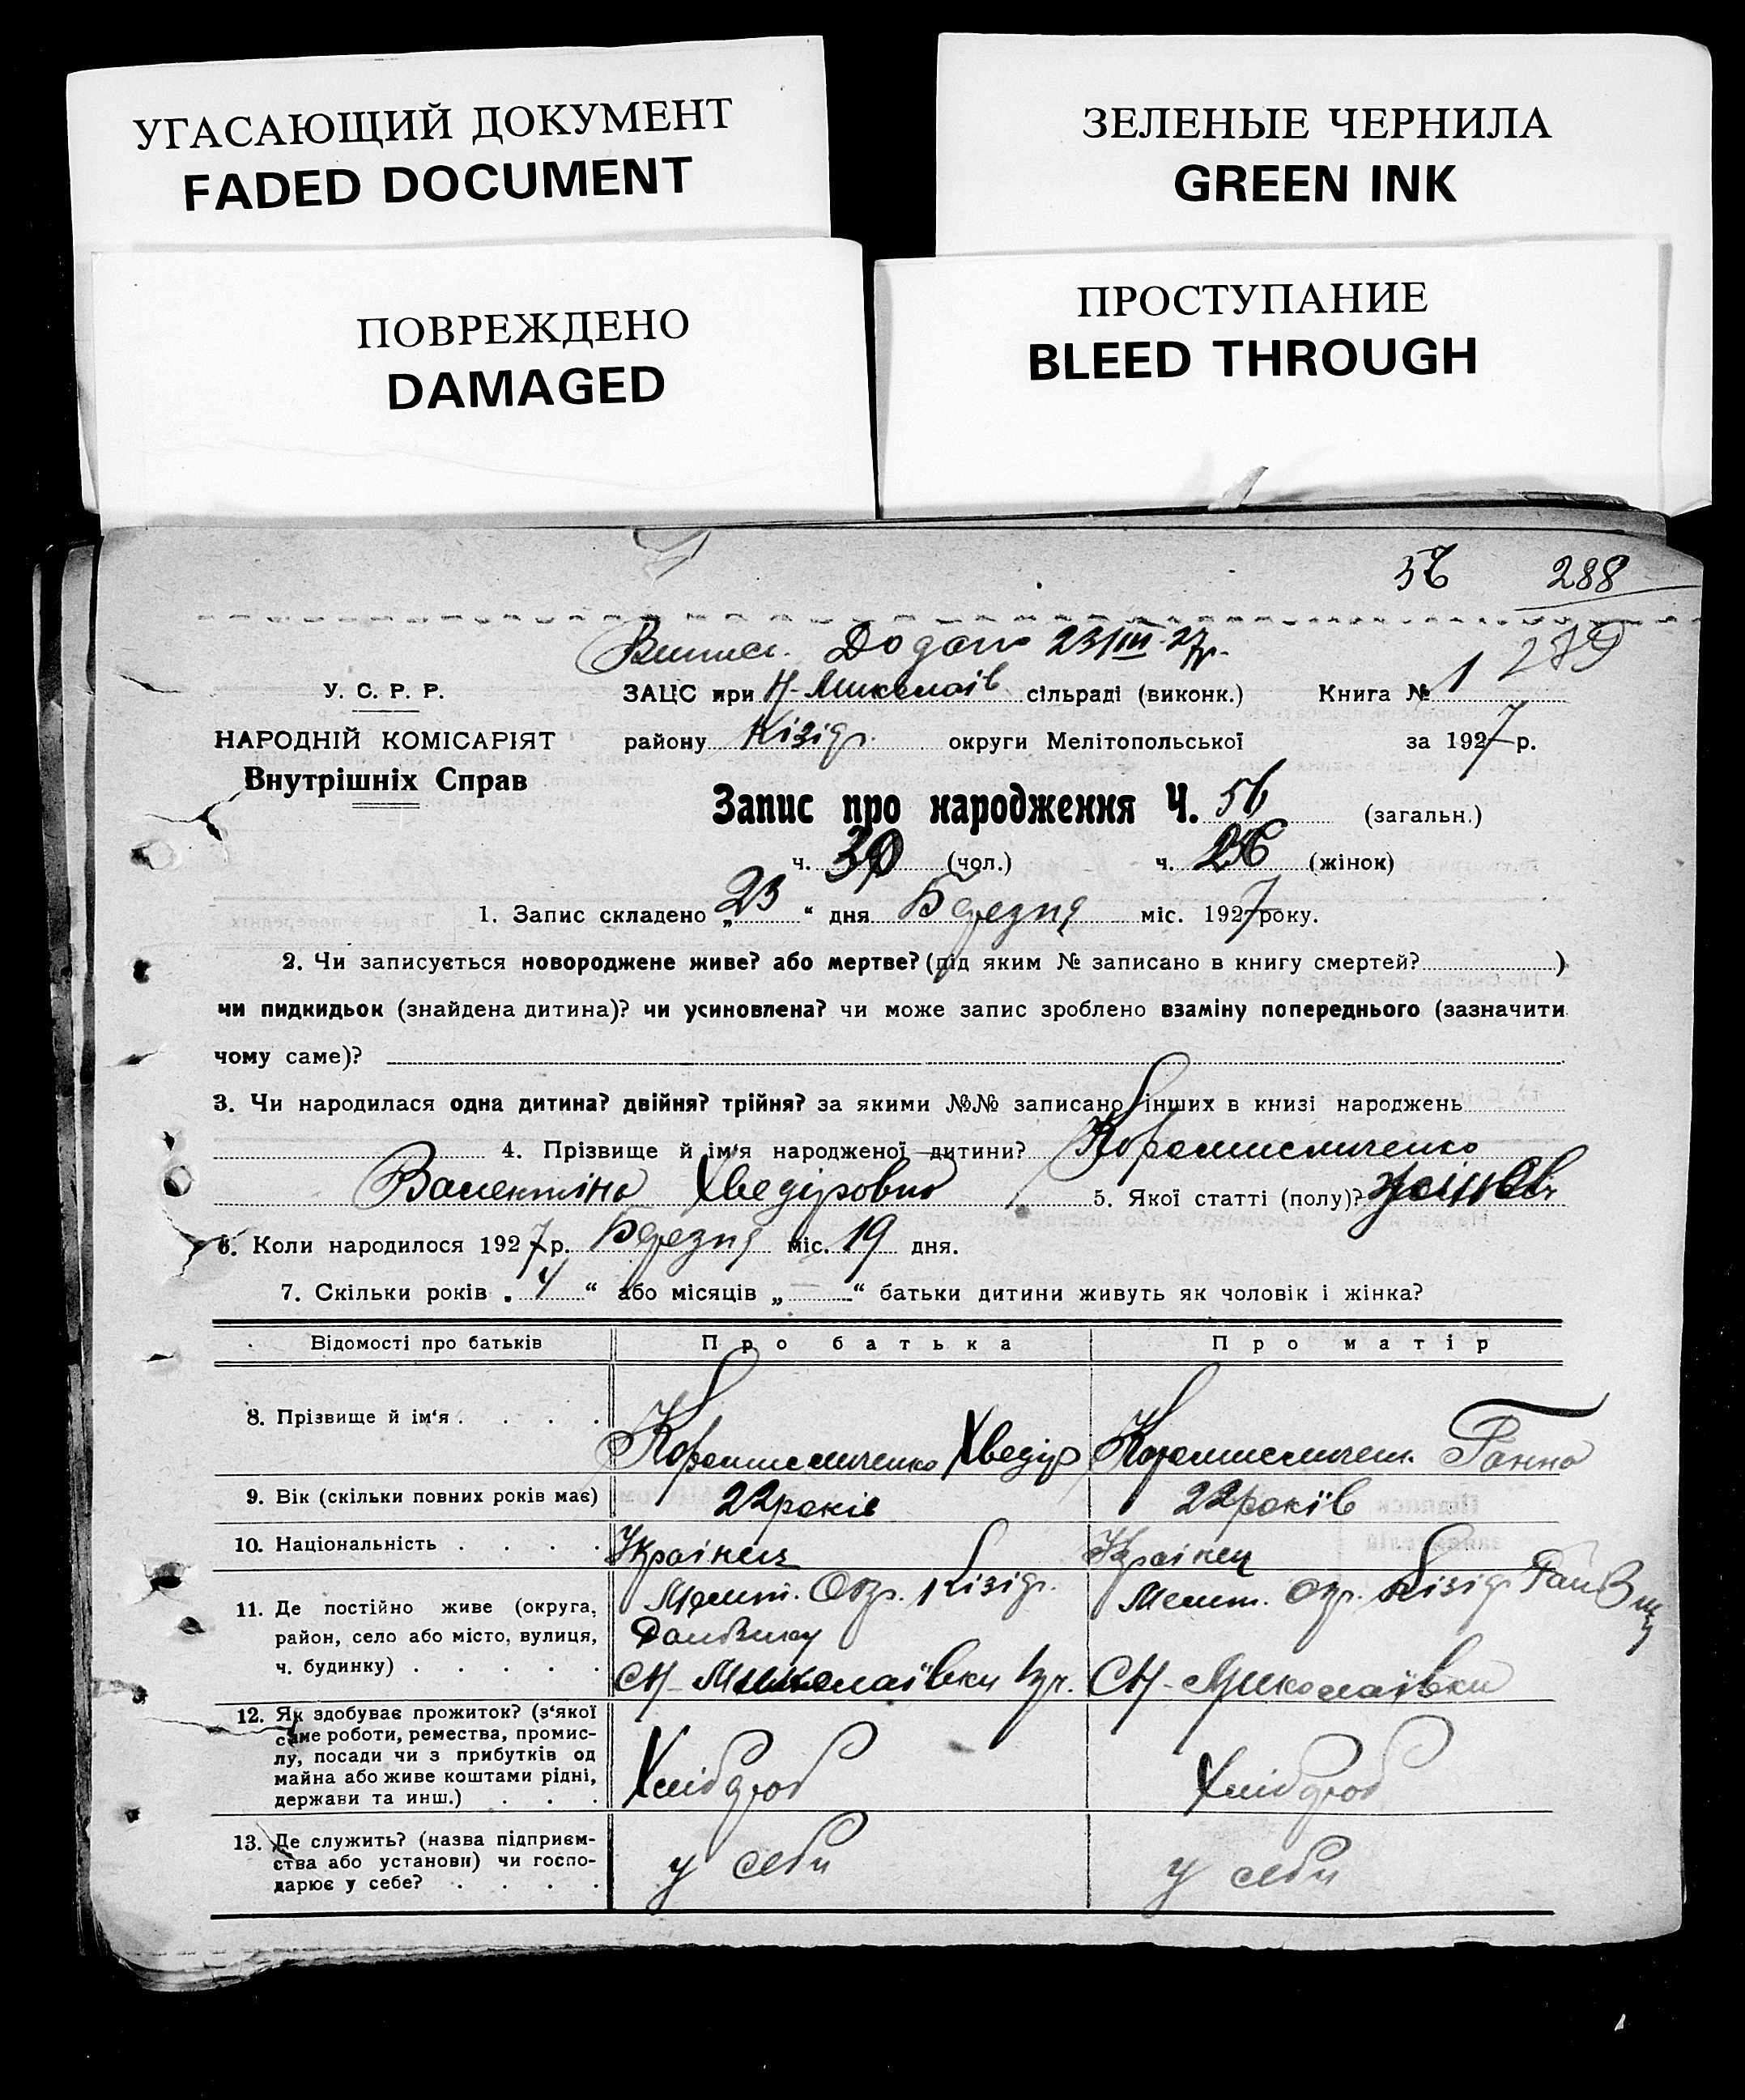 УГАСАЮЩИЙ ДОКУМЕНТ
FADED DOCUMENT
ЗЕЛЕНЫЕ ЧЕРНИЛА
GREEN INK
ПОВРЕЖДЕНО
DAMAGED
ПРОСТУПАНИЕ
BLEED THROUGH
288
23/III 27р.
279
У. С. Р. Р.
НАРОДНІЙ КОМІСАРІЯТ
Внутрішніх Справ
ЗАЦС при Н-Миколаїв сільраді (виконк.) Книга № 1
району Кізідр. округи Мелітопольської за 1927 р.
Запис про народження Ч. 56 (загальн.)
ч. 30 (чол.) ч. 26 (жінок)
1. Запис складено „23“ дня Березня міс. 1927 року.
2. Чи записується новороджене живе? або мертве? (під яким № записано в книгу смертей? )
чи пидкидьок (знайдена дитина)? чи усиновлена? чи може запис зроблено взаміну попереднього (зазначити
чому саме)?
3. Чи народилася одна дитина? двійня? трійня? за якими №№ записано інших в книзі народжень
4. Прізвище й ім'я народженої дитини? Коромисличенко
Валентіна Хведіровна 5. Якої статті (полу)?
6. Коли народилося 1927 р. Березня міс. 19 дня.
7. Скільки років „4“ або місяців „—“ батьки дитини живуть як чоловік і жінка?
Відомості про батьків Про батька Про матір
8. Прізвище й ім'я . . . . Коромисличенко Хведір Коромисличен. Ганна
9. Вік (скільки повних років має) 22 років 22 років
10. Національність . . . . Украінец Украінец
11. Де постійно живе (округа, район, село або місто, вулиця, ч. будинку) . . . . . Мелит. Окр. Кізідр. Мелит. Окр. Кізідр.
СН-Миколаївки СН-Миколаївки
12. Як здобуває прожиток? (з'якої саме роботи, ремества, промислу, посади чи з прибутків од майна або живе коштами рідні, держави та инш.) . . . Хлібороб Хлібороб
13. Де служить? (назва підприємства або установи) чи господарює у себе? . . . . у себи у себи